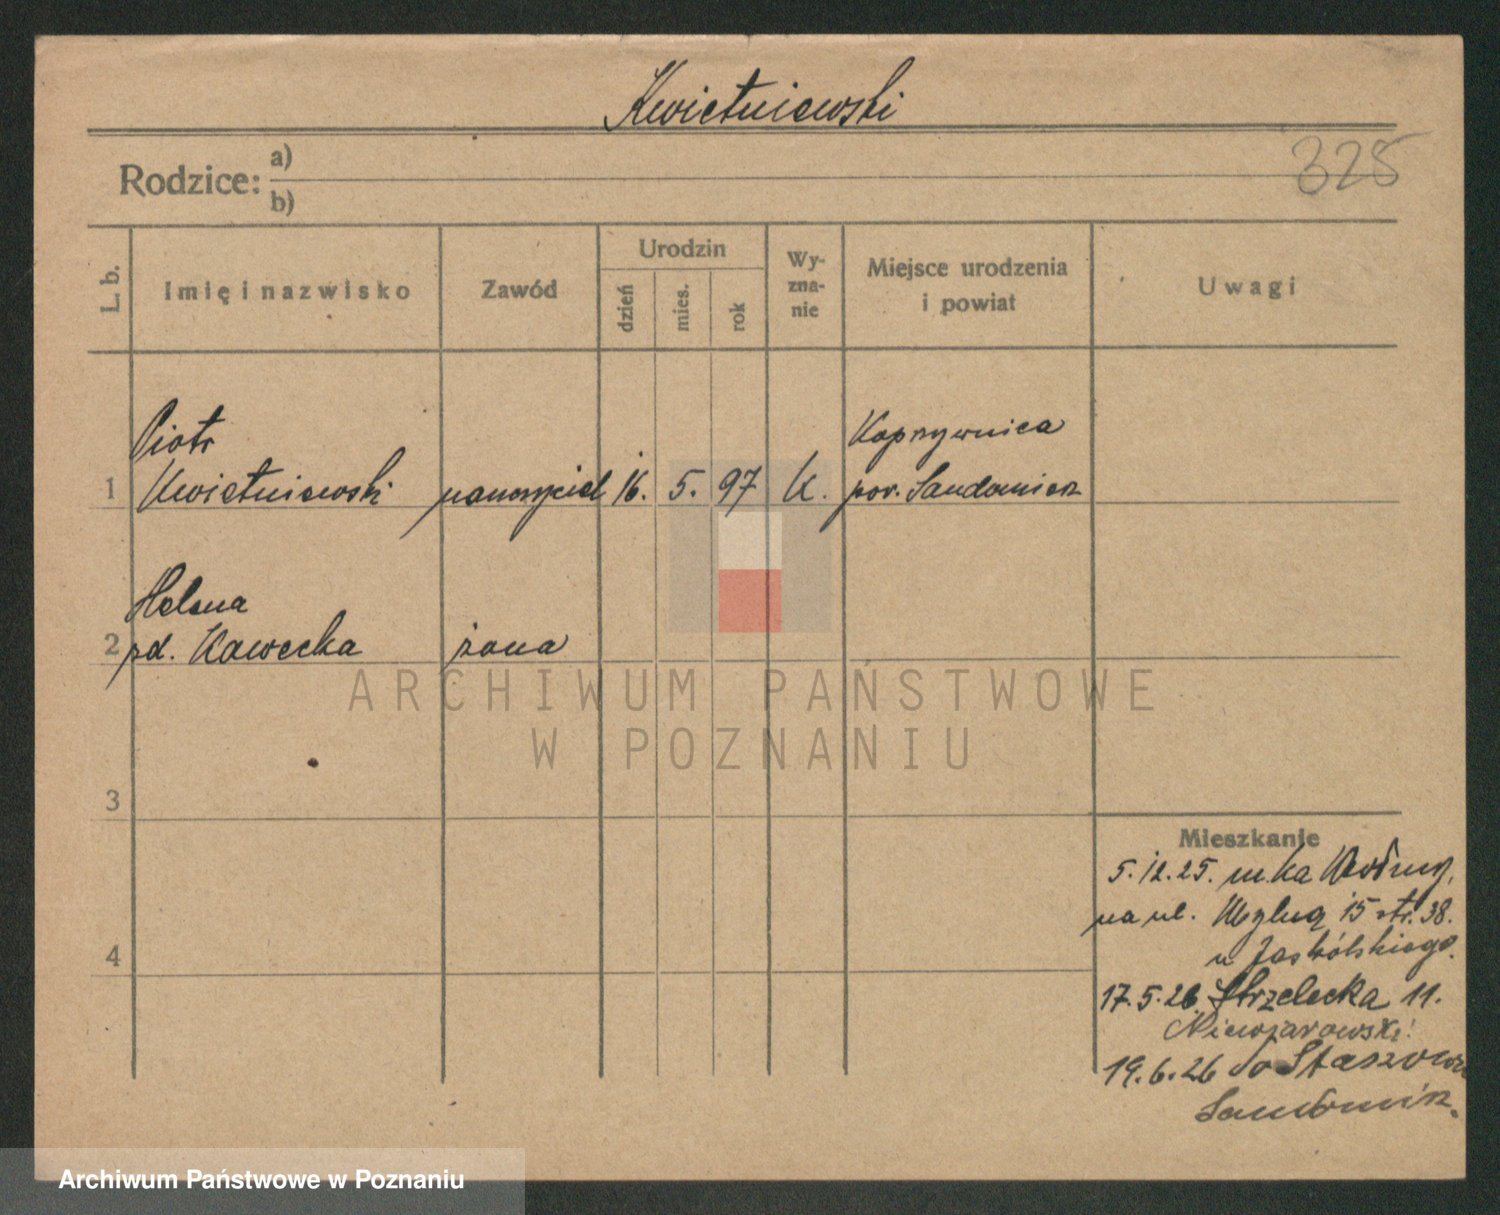 Kwietniewski
325
Rodzice: a)
b)
L. b.
Imię i nazwisko
Zawód
Urodzin
dzień
mies.
rok
Wy-
zna-
nie
Miejsce urodzenia
i powiat
Uwagi
1
Piotr
Kwietniewski
nauczyciel
16. 5. 97
K.
Koprzywnica
pow. Sandomierz
2
Helena
zd. Kawecka
żona
3
4
Mieszkanie
5.12.25.
na ul. 15 str. 38.
u Jaskólskiego.
17.5.26 Strzelecka 11.
Niewiarowski
19.6.26 do
Sandomierz.
ARCHIWUM PAŃSTWOWE
W POZNANIU
Archiwum Państwowe w Poznaniu